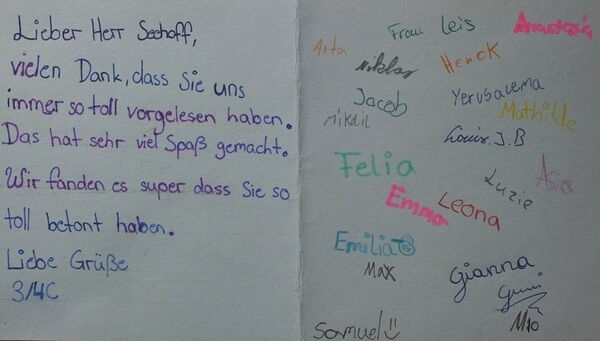 Lieber Herr Seehoff,
vielen Dank, dass Sie uns
immer so toll vorgelesen haben.
Das hat sehr viel Spaß gemacht.
Wir fanden es super dass Sie so
toll betont haben.
Liebe Grüße
3/4C
Frau Leis
Anastasia
Arta
Niklas
Henck
Jacob
Yerusalema
Mathilde
Mikail
Louis. J. B
Felia
Luzie
Asia
Emma
Leona
Emilia
Max
Gianna
Mio
Samuel